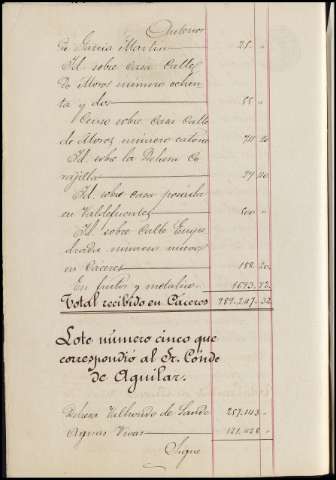 Anterior
de Garcia Martin 25 "
Id. sobre Casa Calle
de Moros número ochen
ta y dos 55 "
Censo sobre Casa Calle
de Moros número catorce
Id. sobre la Dehesa
Id. sobre Casa posada
en Valdefuentes 500 "
Id. sobre Calle Empe
drada número nueve
en Cáceres 188 20
En frutos y metalico 1693 72
Total recibido en Cáceres 789.247 32
Lote número cinco que
correspondió al Sr. Conde
de Aguilar.
Dehesa Valhondo de Sande 257.143 "
Aguas Vivas 121.428 "
Sigue